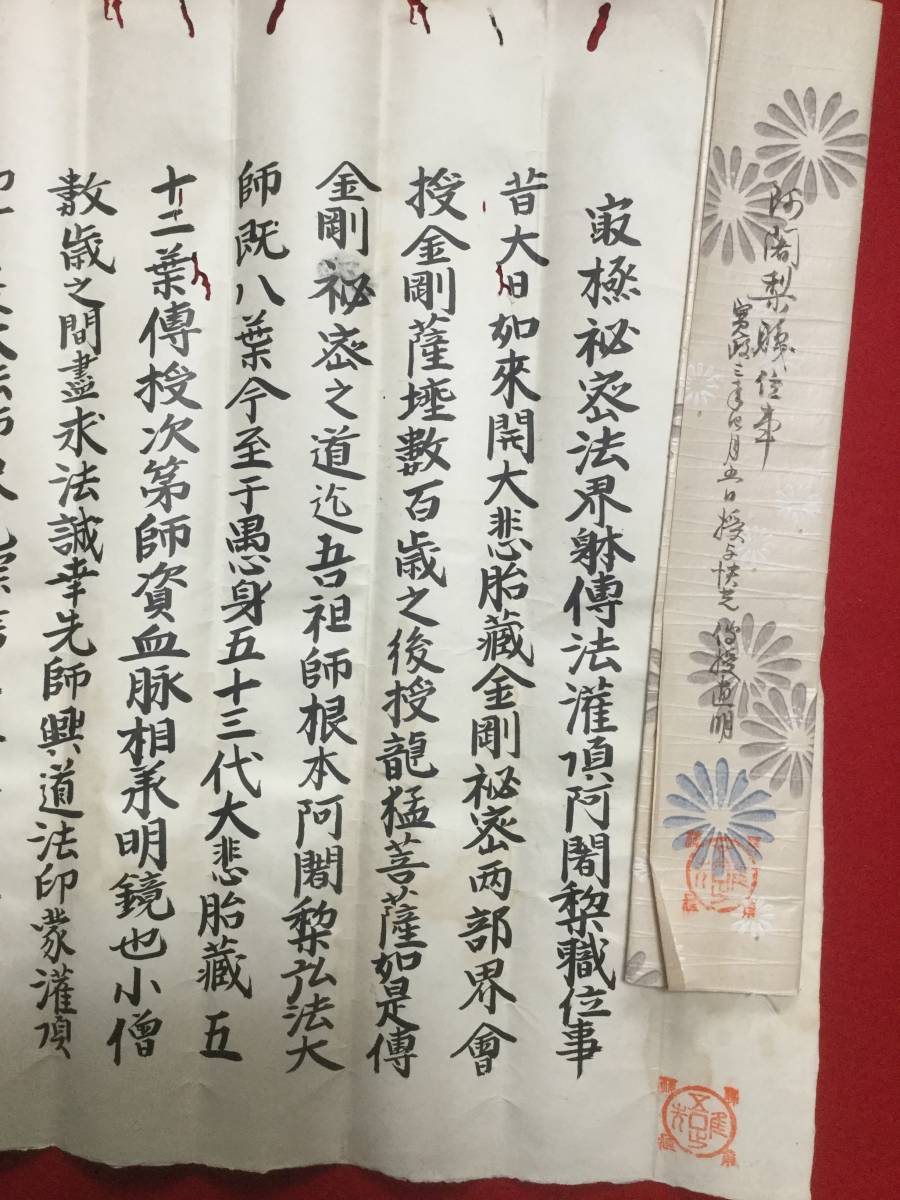 阿闍梨職位事
寛政三年四月五日授与快光 傳授道明
㝡極祕密法界躰傳法灌頂阿闍梨職位事
昔大日如來開大悲胎藏金剛祕密両部界會
授金剛薩埵數百歳之後授龍猛菩薩如是傳
金剛祕密之道迄吾祖師根本阿闍梨弘法大
師既八葉今至于愚身五十三代大悲胎藏五
十二葉傳授次第師資血脉相承明鏡也小僧
數歳之間盡求法誠幸先師興道法印蒙灌頂